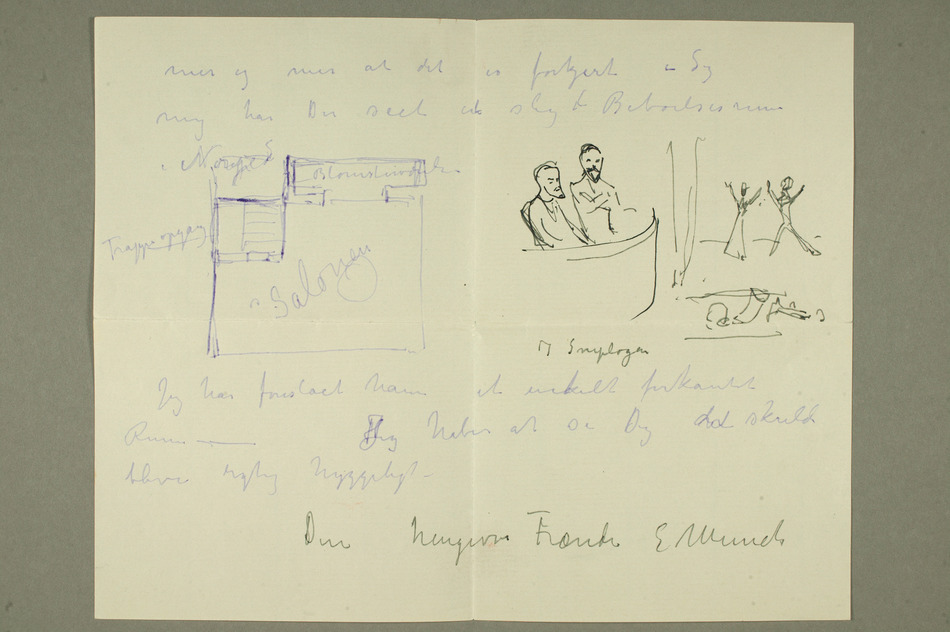 mer og mer at det er forkjert – Jeg
mig har Du seet et slig Beboelsesrum
Blomstervindu
Trappeopgang
Salonen
I Smuglogen
Jeg har foreslaaet ham et enkelt firkantet
Rum —— Jeg haber at se Dig det skulde
blive rigtig hyggeligt –
Din hengivne Frænde E Munch